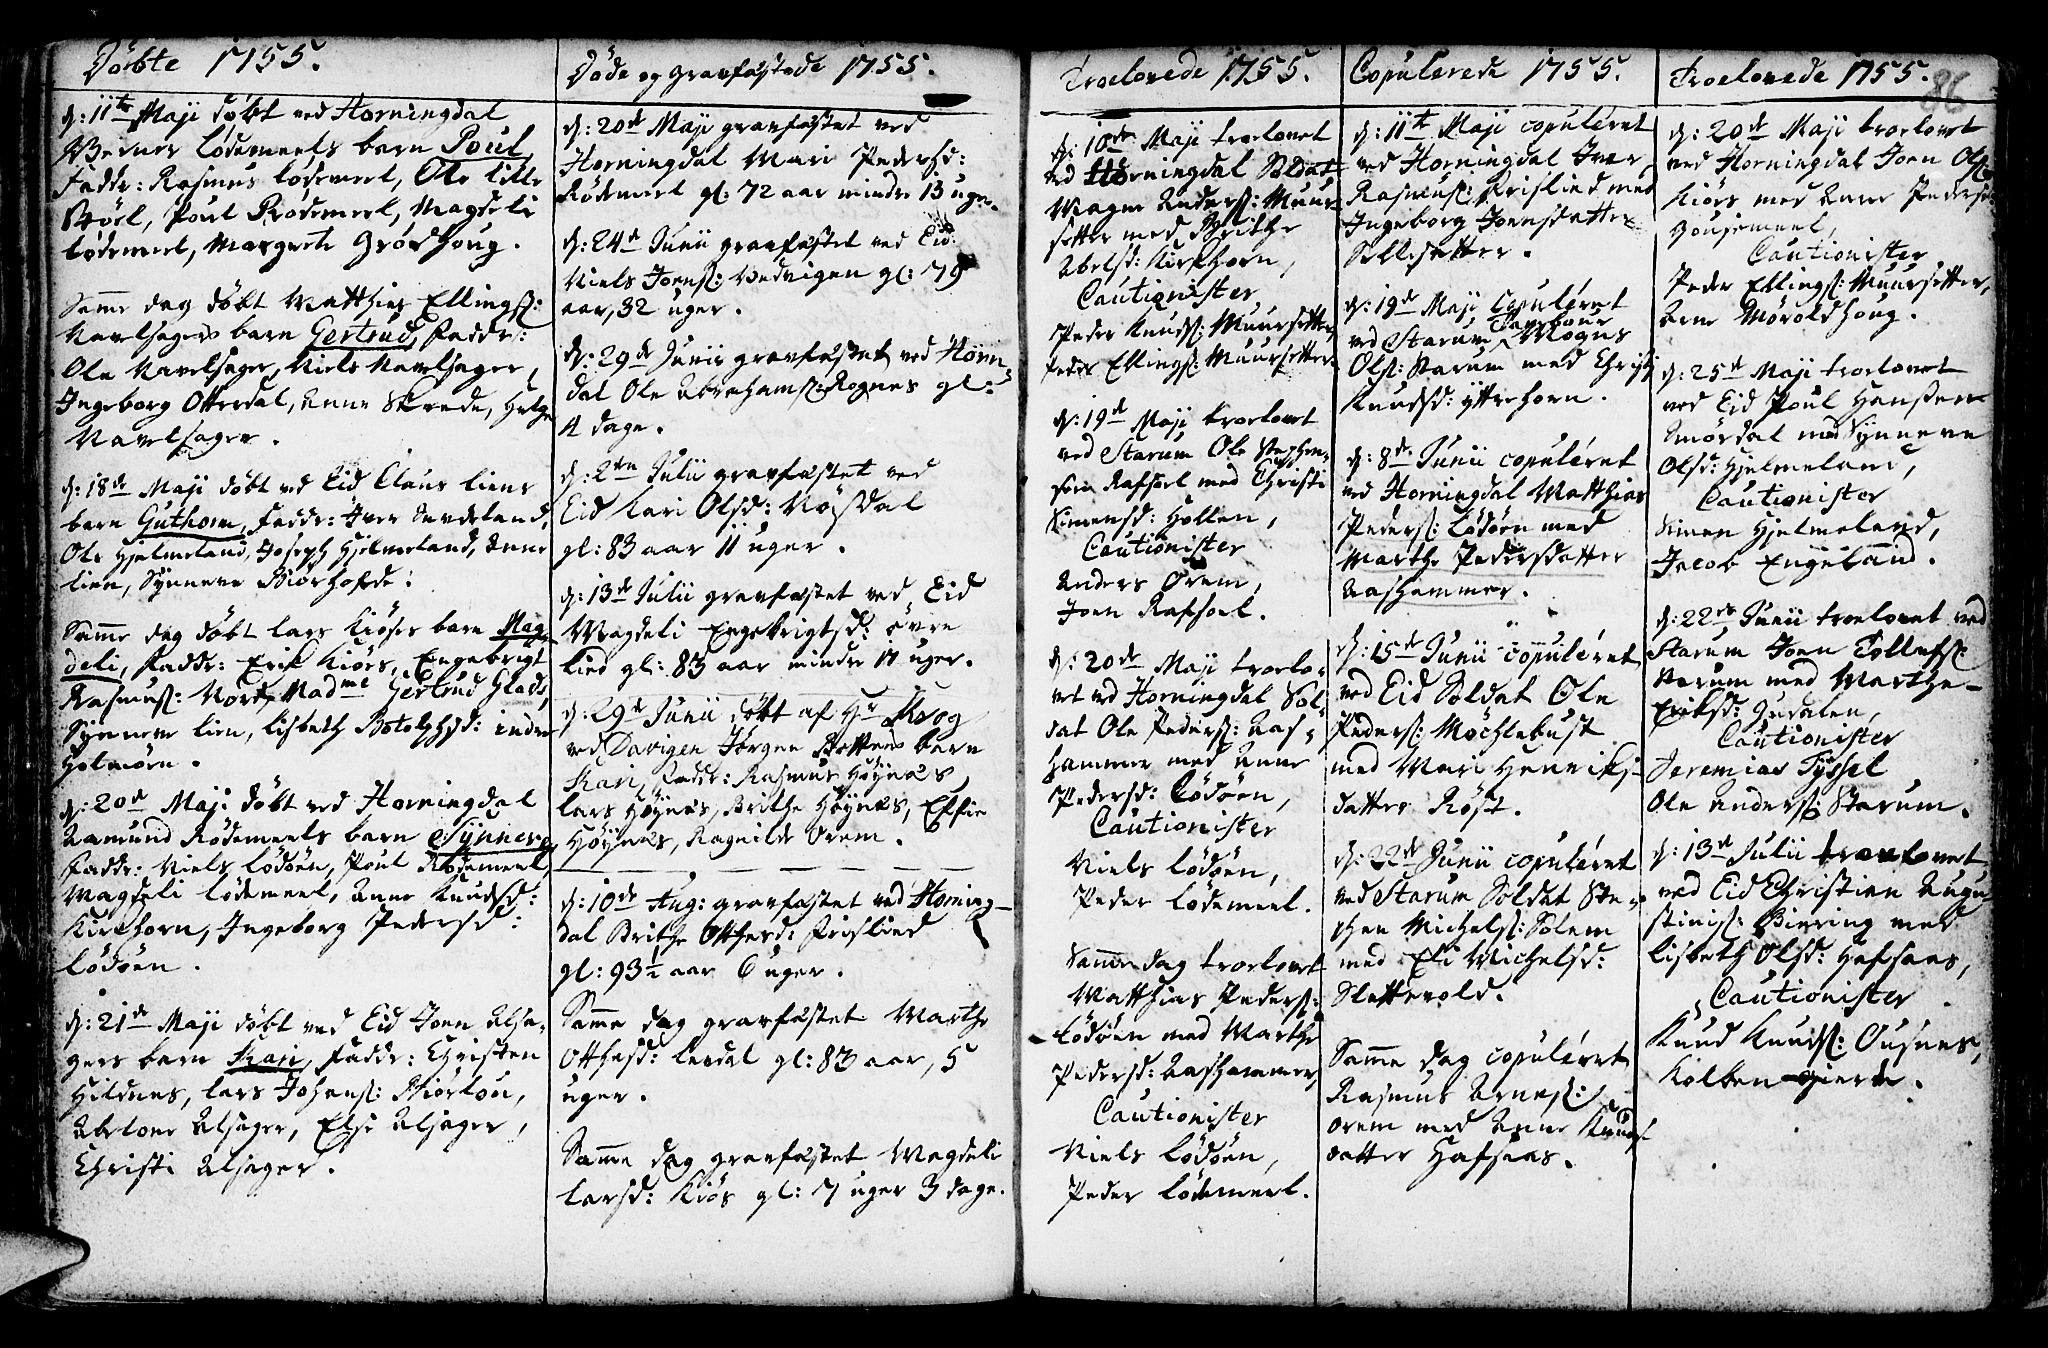 Döbte 1755.
d: 11te Maji döbt ved Horningdal
Berner Lödemeels barn Poul
Faddr: Rasmus Lödemeel, Ole Lille
Stöel, Poul Rödemeel, Magdeli
Lödemeel, Margrete Grödhoug.
Samme dag döbt Matthias Ellings:
Navelsagers barn Gertrud, Faddr:
Ole Navelsager, Niels Navelsager,
Ingeborg Otterdal, Anne Skrede, Helge
Navelsager.
d: 18de Maji döbt ved Eid Claus Liens
barn Guthorm, Faddr: Iver Sunde land,
Ole Hjelmeland, Joseph Hjelmeland, Anne
Lien, Synneve Biörhofde:
Samme dag döbt Lars Kiöses barn Mag
deli, Faddr: Erik Kiörs, Engebrigt
Rasmus: Nord, Madme Gertrud Glads,
Synneve Lien, Lisbeth Botolphsd: indre
Holmöen.
d: 20de Maji döbt ved Horningdal
Aamund Rödemeels barn Synneve
Faddr: Niels Lödöen, Poul Rödemeel,
Magdeli Lödemeel, Anne Knudsd:
Kirkhorn, Ingeborg Pedersd:
Lödöen.
d: 21de Maji döbt ved Eid Joen Alsa-
gers barn Kari, Faddr: Christen
Hildnes, Lars Johans: Hiörlou,
Abelone Alsager, Else Alsager,
Christi Alsager.
Döde og Gravfæstede 1755.
d: 20de Maji gravfæstet ved
Horningdal Mari Pedersd:
Rödemeel gl: 72 aar mindre 13 uger.
d: 24de Junii gravfæstet ved Eid
Niels Joens: Nedvigen gl: 79
aar, 32 uger.
d: 29de Junii gravfæstet ved Horn-
dal Ole Abrahams: Rognes gl:
4 dage.
d: 2den Julii gravfæstet ved
Eid Kari Olsd: Nösdal
gl: 83 aar 11 uger.
d: 13de Julii gravfæstet ved Eid
Magdeli Engebrigtsd: övre
Lied gl: 83 aar mindre 11 uger.
d: 29de Junii döbt af Hr Krog
ved Davigen Jörgen Rottens barn
Kari, Faddr: Rasmus Höynæs,
Lars Höynæs, Brithe Höynæs, Elsie
Höynæs, Ragnilde Orem.
d: 10de Aug: gravfæstet ved Horning-
dal Brithe Ottersd: Frislied
gl: 93½ aar 6 uger.
Samme dag gravfæstet Marthe
Ottesd: Leedal gl: 83 aar, 5
uger.
Samme dag gravfæstet Magdeli
Larsd: Kiös gl: 7 uger 3 dage.
Troelovede 1755.
d: 10de Maji troelovet
ved Horningdal Soldat
Mogns Anders: Muur-
setter med Brithe
Abelsd: Kirkhorn,
Cautionister
Peder Knuds: Muursetter,
Peder Ellings: Muursetter.
d: 19de Maji troelovet
ved Starum Ole Stephen-
sen Rafsoel med Christi
Simensd: Hollen,
Cautionister
Anders Orem,
Joen Rafsoel.
d: 20de Maji troelo-
vet ved Horningdal Sol-
dat Ole Peders: Aas-
hammer med Anne
Pedersd: Lödöen,
Cautionister
Niels Lödöen,
Peder Lödemeel.
Samme dag troelovet
Matthias Peders:
Lödöen med Marthe
Pedersd: Aashammer,
Cautionister
Niels Lödöen,
Peder Lödemeel.
Copulerede 1755.
d: 11te Maji copuleret
ved Horningdal Iver
Rasmus: Frislied med
Ingeborg Joensdatter
Sillesetter.
d: 19de Maji Copuleret
Tambour
ved Starum Mogns
Ols: Starum med Christi
Knudsd: yttrehorn.
d: 8de Junii copuleret
ved Horningdal Matthias
Peders: Lödöen med
Marthe Pedersdatter
Aashammer.
d: 15de Junii copuleret
ved Eid Soldat Ole
Peders: Möchlebust
med Mari Henriks-
datter Röst.
d: 22de Junii copuleret
ved Starum Soldat Ste-
phen Michels: Solem
med Eli Michelsd:
Slettevold.
Samme dag copuleret
Rasmus Arnes:
Orem med Anne Knuds
datter Hafsaas.
Troelovede 1755.
86
d: 20de Maji troelovet
ved Horningdal Joen Ols:
Kiörs med Anne Pedersd:
Housemeel,
Cautionister
Peder Ellings: Muursetter,
Arne Möroldhoug.
d: 25de Maji troelovet
ved Eid Poul Hansen
Smördal med Synneve
Olsd: Hjelmeland,
Cautionister
Simen Hjelmeland,
Jacob Engeland.
d: 22de Junii troelovet ved
Starum Joen Tollefs:
Starum med Marthe
Eriksd: Hudalen,
Cautionister
Jeremias Tyssel
Ole Anders: Starum.
d: 13de Julii troelovet
ved Eid Christien Augu-
stinis: Biering med
Lisbeth Olsd: Hafsaas,
Cautionister
Knud Knuds: Ousnes,
Kolben gierde.